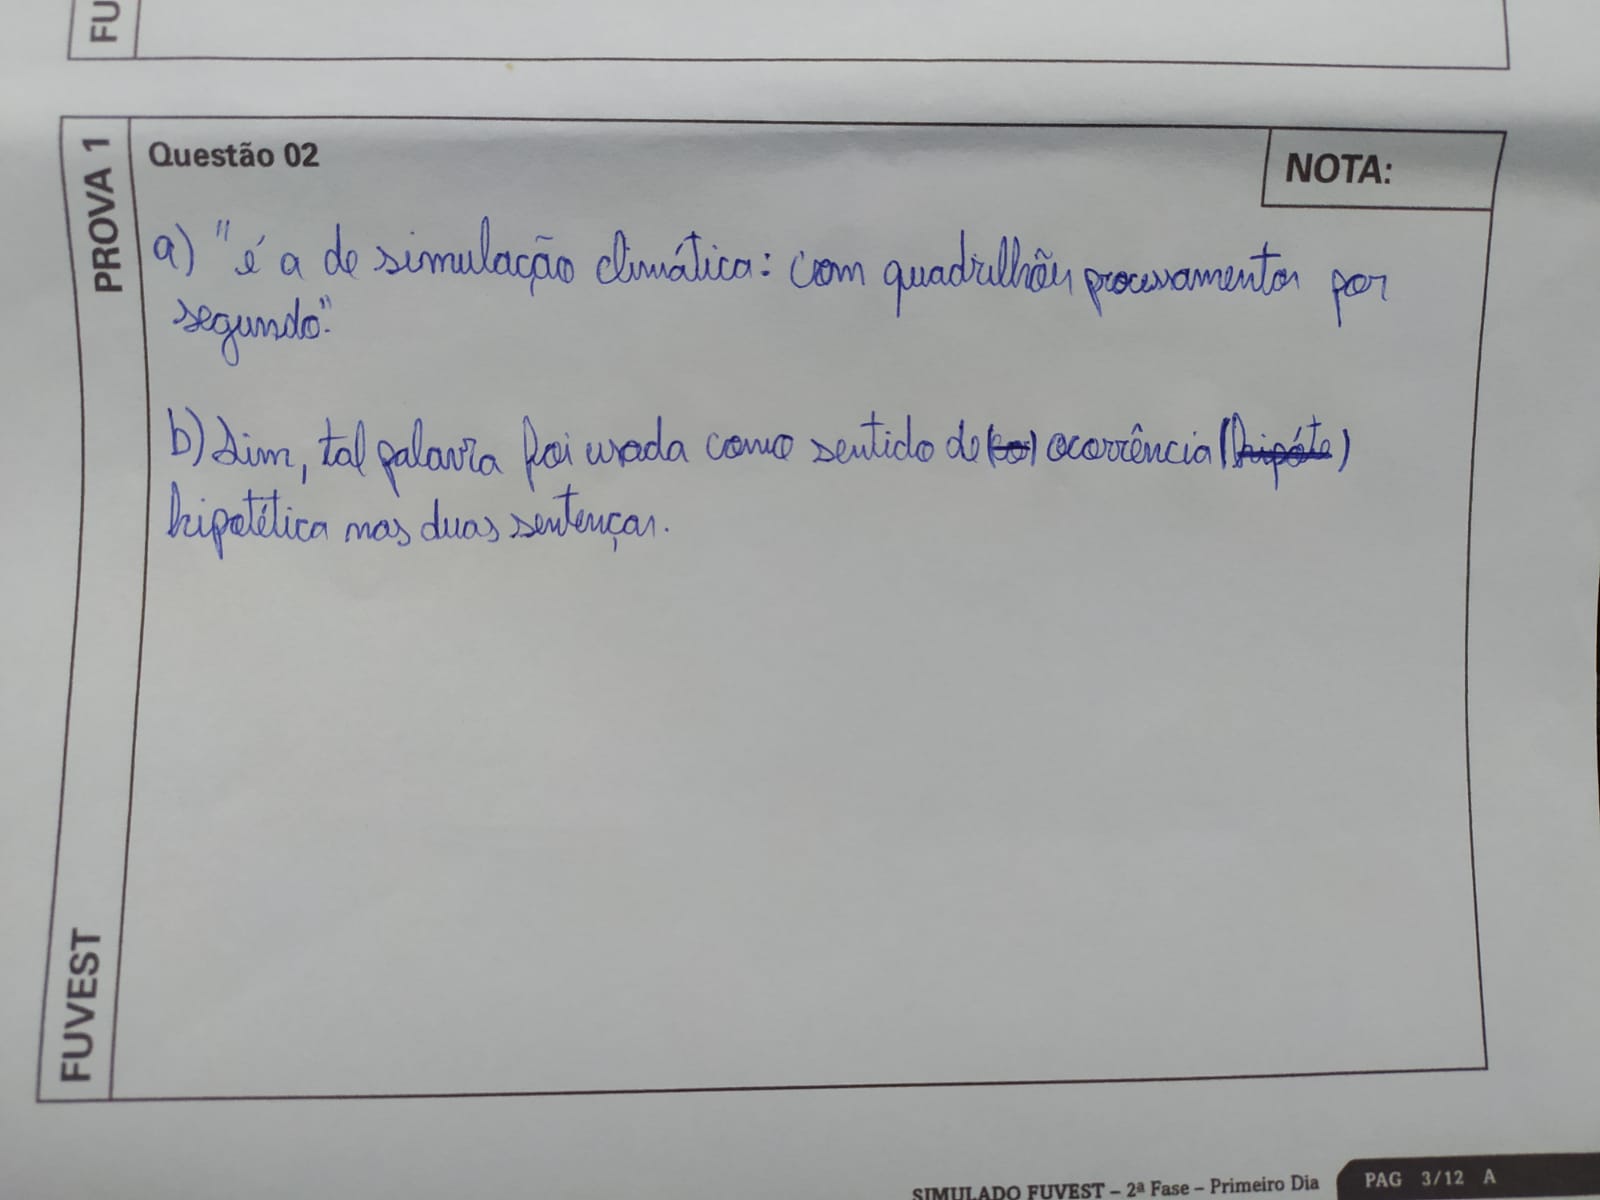 FU
PROVA 1
FUVEST
Questão 02
NOTA:
a) "é a de simulação climática: com quadrilhões processamentos por
segundo".
b) Sim, tal palavra foi usada como sentido de ocorrência (hipóte)
hipotética nas duas sentenças.
SIMULADO FUVEST – 2ª Fase – Primeiro Dia
PAG 3/12 A